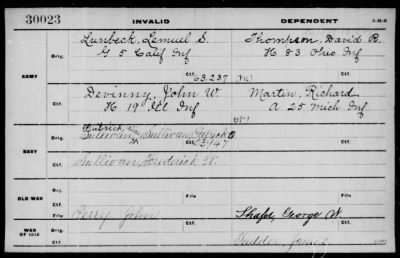 30023 INVALID DEPENDENT 3-H-6
Lunbeck, Lemuel S. Thompson, David B.
Orig. G 5 Calif Inf K 83 Ohio Inf
ARMY 63,237
Ctf. Ctf.
Devinny, John W. Martin, Richard
K 19 Ill Cav A 25 Mich Inf
Patrick
Orig. Sullivan Sullivan, Patrick Orig.
NAVY
Sullivan, Frederick W.
Ctf. Ctf.
Orig. Orig.
OLD WAR
Ctf. Perry John Ctf. Shafer, George W.
WAR OF 1812 Orig. Orig.
Ctf. Ctf.